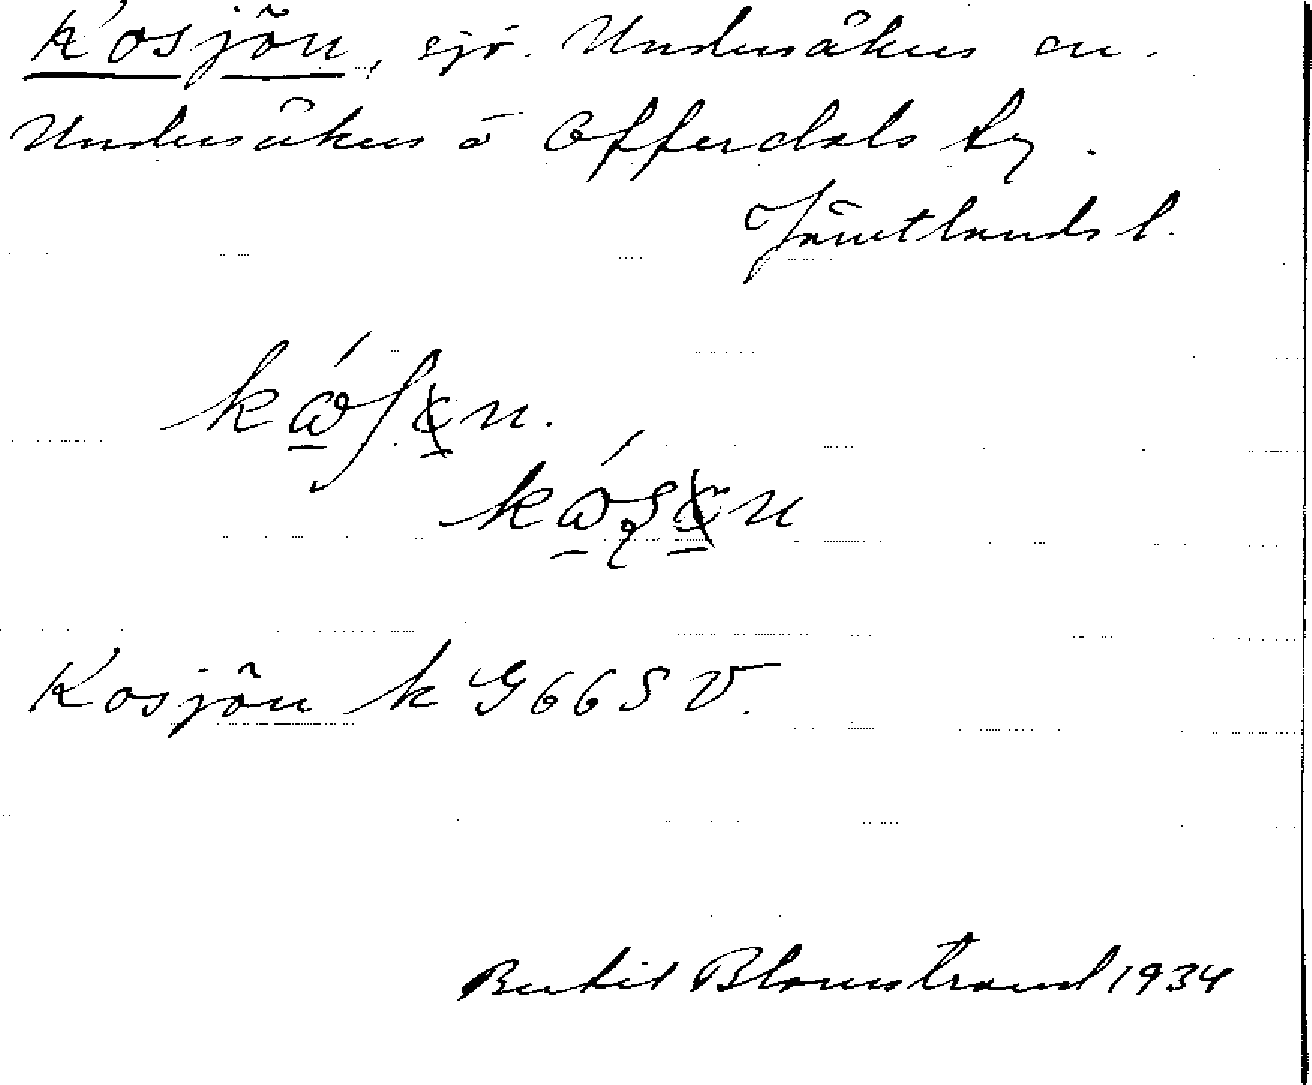 Kosjön, sjö. Undersåkers sn.
Undersåkers o Offerdals tg.
Jämtlands l.
Kosjön k G66SV.
Bertil Blomstrand 1934